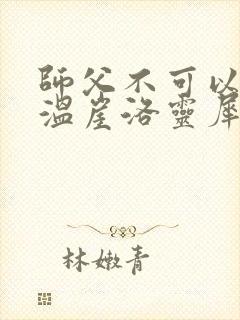 師父不可以
溫崖洛靈犀
林嫩青